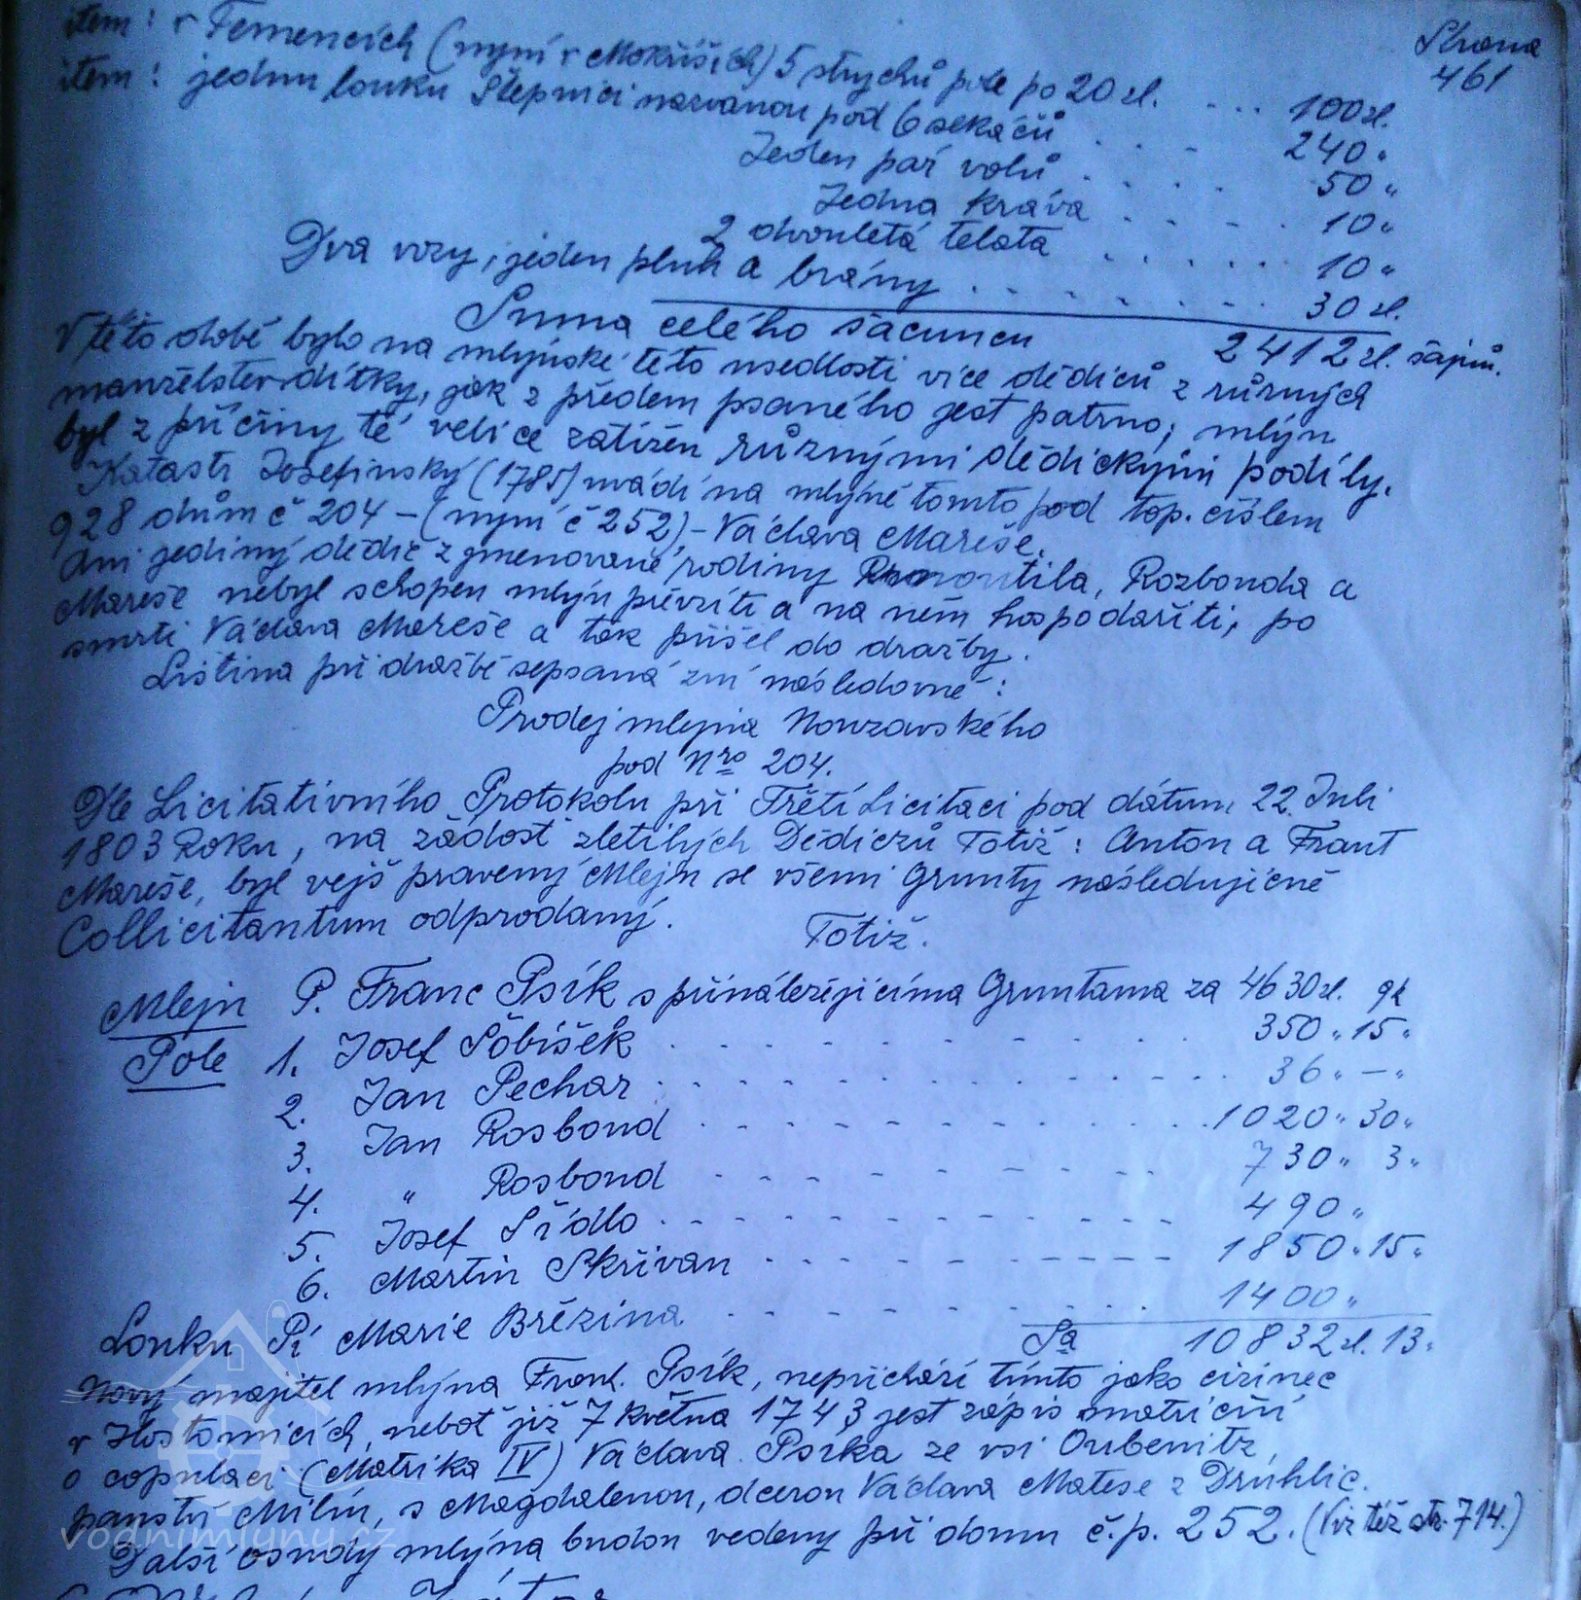 Strana
461
item: v Temencích (nyní v Mokřiších) 5 strychů pole po 20 zl. . . . 100 zl.
item: jednu louku Štěpnici nazvanou pod 6 sekáčů . . . 240 "
Jeden pár volů . . . . 50 "
Jedna kráva . . . . 10 "
2 dvouletá telata . . . . . 10 "
Dva vozy, jeden pluh a brány . . . . . . 30 zl.
Suma celého šacuncu 2412 zl. šajnů.
V této době bylo na mlýnské této usedlosti více dědiců z různých
manželstev-dítky, jak z předem psaného jest patrno; mlýn
byl z příčiny té velice zatížen různými dědickými podíly.
Katastr Josefinský (1785) uvádí na mlýně tomto pod top. číslem
928 dům č 204 - (nyní č 252) - Václava Mareše.
Ani jediný dědic z jmenované rodiny Rozbonda a
Mareše nebyl schopen mlýn převzíti a na něm hospodařiti, po
smrti Václava Mareše a tak přišel do dražby.
Listina při dražbě sepsaná zní následovně:
Prodej mlejna Nouzovského
pod Nro 204.
Dle Licitativního Protokolu při Třetí Licitaci pod dátum 22. Juli
1803 Roku, na žádost zletilých Dědiczů Totiž: Anton a Frant
Mareše, byl vejš pravený Mlejn se všemi Grunty následujícně
Collicitantum odprodaný. Totiž.
Mlejn P. Franc Psík s přináležejícíma Gruntama za 4630 zl. 9k
Pole 1. Josef Sobíšek . . . . . . 350 " 15 "
2. Jan Pechar . . . . . . 36 " - "
3. Jan Rosbond . . . . . . 1020 " 30 "
4. " Rosbond . . . . . . 730 " 3 "
5. Josef Šídlo . . . . . . 490 "
6. Martin Skřivan . . . . . . 1850 " 15 "
Louku Pí Marie Březina . . . . . . 1400 "
Sa 10832 zl. 13 "
Nový majitel mlýna Frant. Psík, nepřichází tímto jako cizinec
v Hostomicích, neboť již 7 května 1743 jest zápis matriční
o copulaci (Matrika IV) Václava Psíka ze vsi Oubenitz,
panství Milín, s Magdalenou, dcerou Václava Matese z Drúhlic.
Další osudy mlýna budou vedeny při domu č.p. 252. (Viz též str. 714.)
vodnimlyny.cz